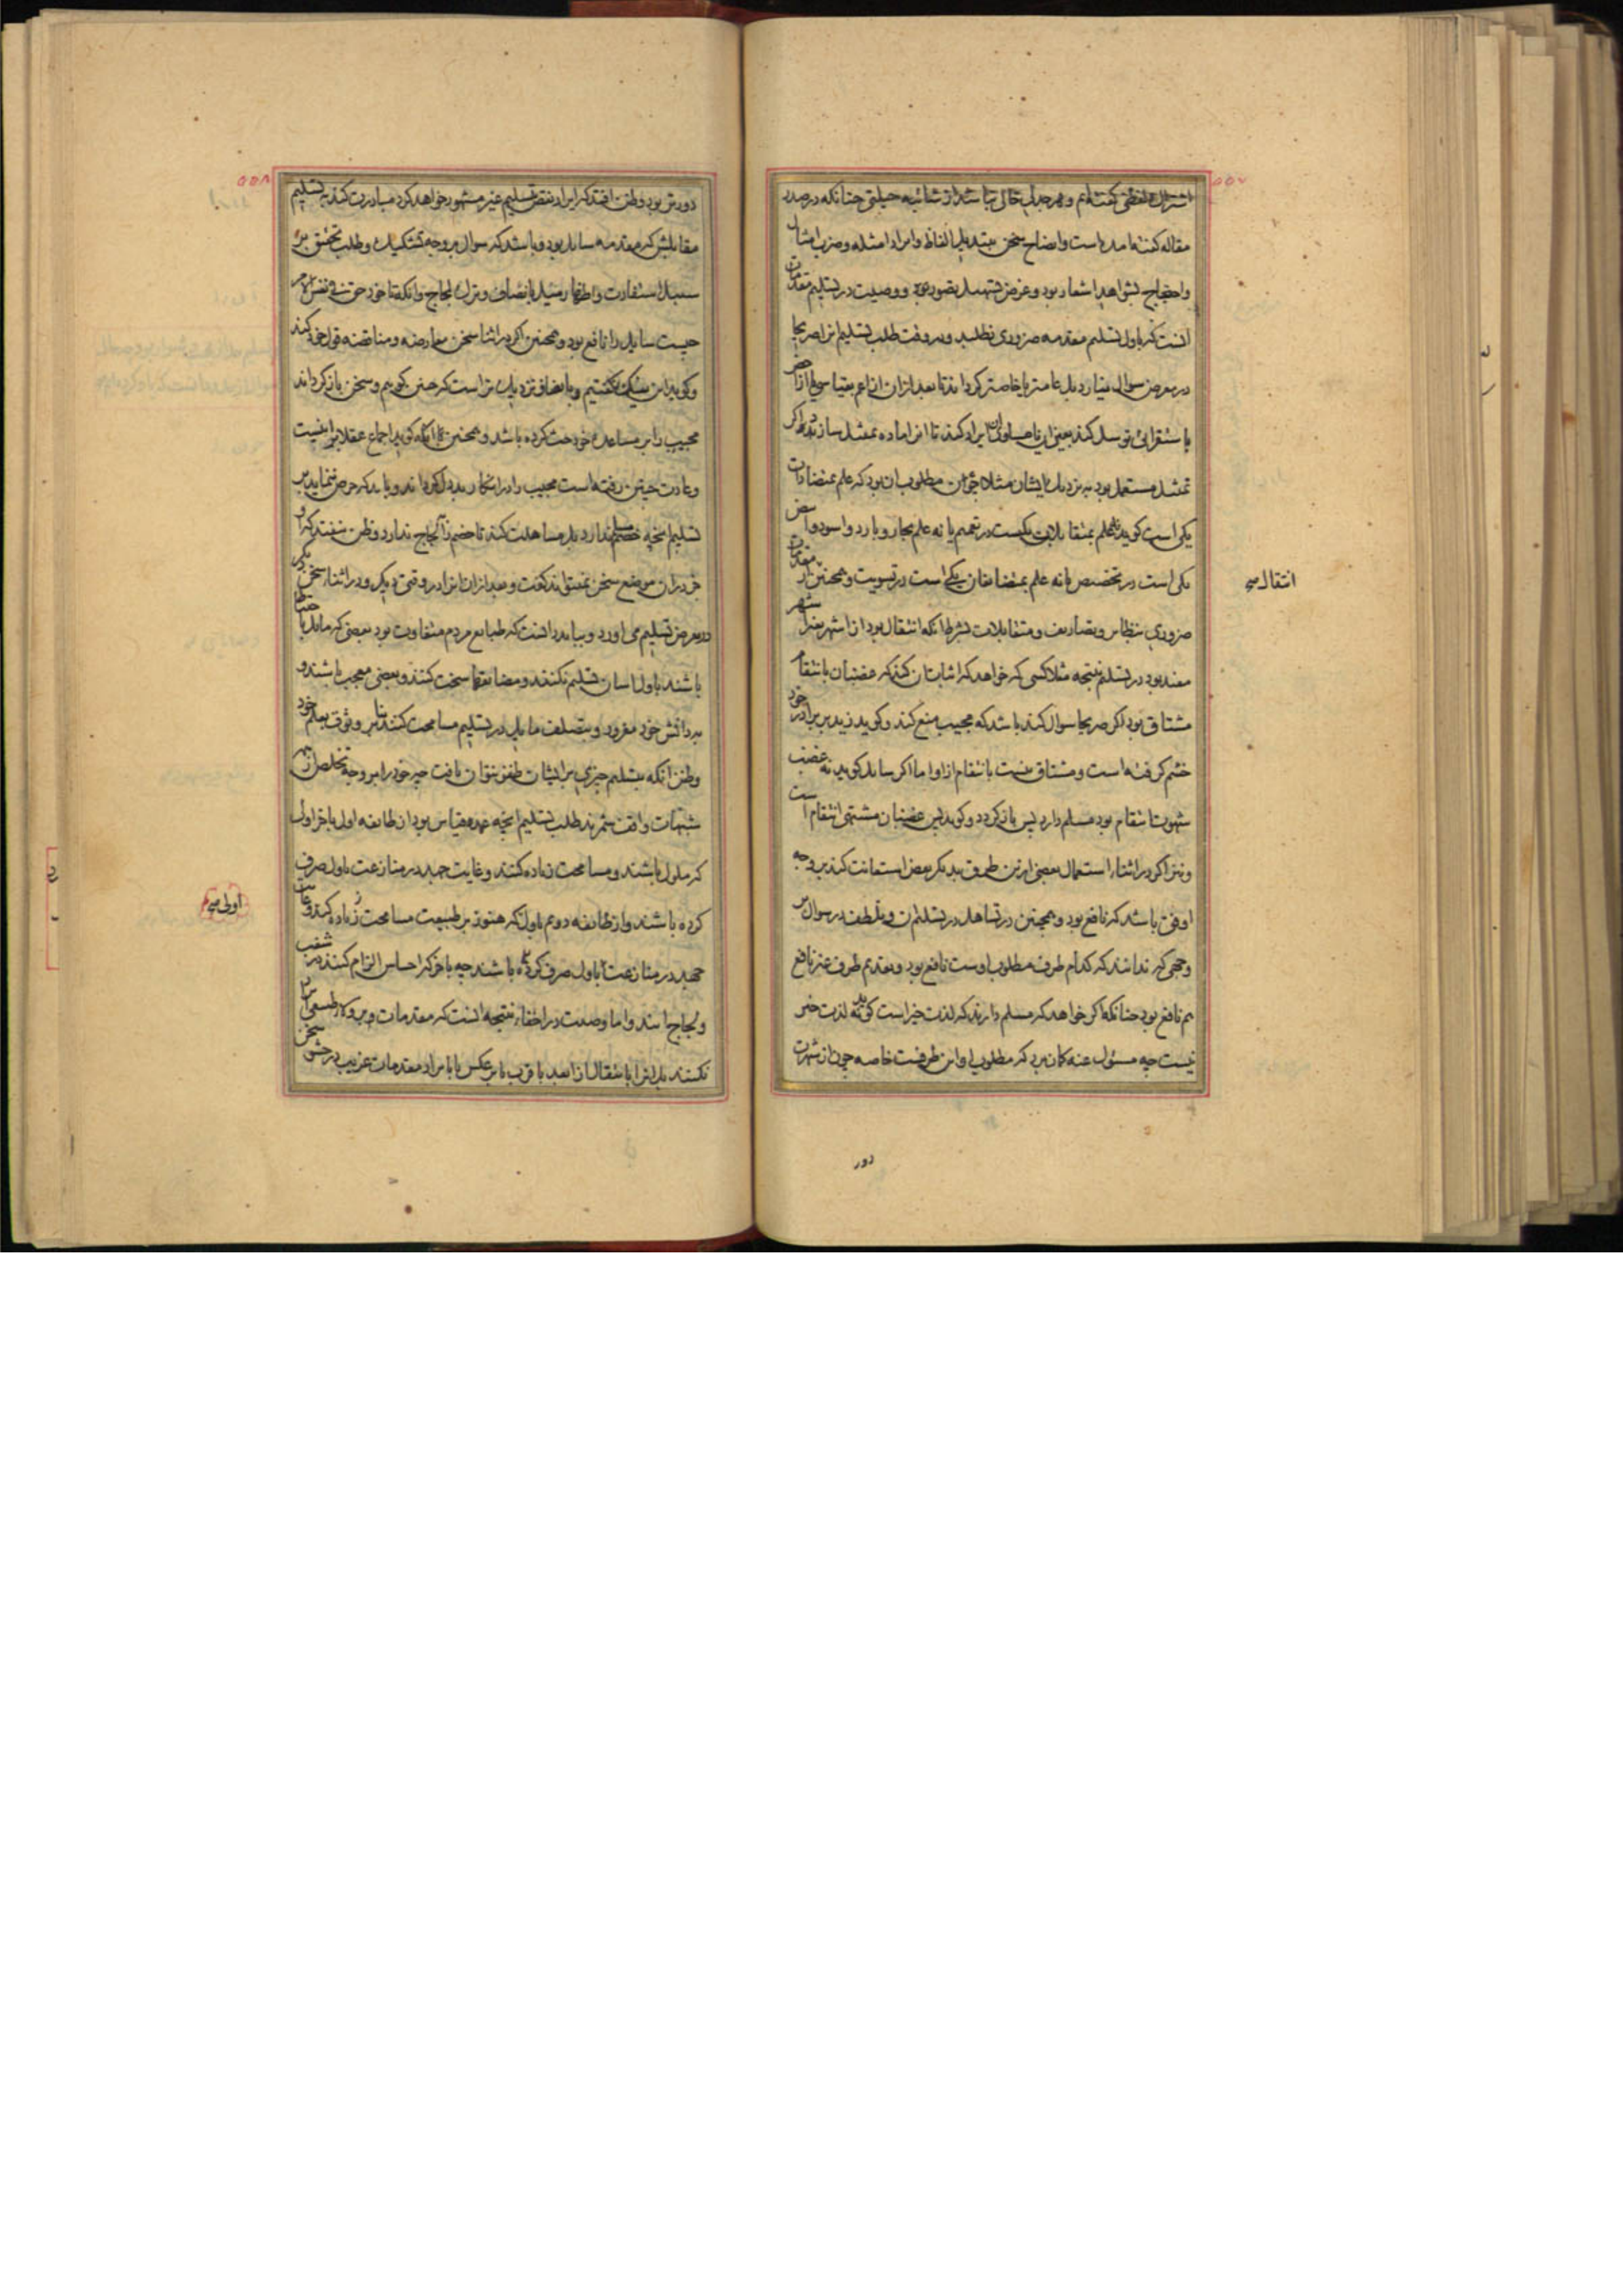 ۵۵۷
اشتراک لفظی گفته‌ایم و هر جدلی خالی نباشد از شائبه حیلتی چنانکه در صدر
مقاله گفته آمده است و ایضاح سخن بتبدیل الفاظ و ایراد امثله و ضرب امثال
و احتجاج بشواهد اشعار بود و غرض تسهیل تصور بود و وصیت در تسلیم مقدمات
آنست که باول تسلیم مقدمه ضروری نطلبد و در وقت طلب تسلیم آنرا صریحا
در معرض سوال نیارد بل عامتر یا خاصتر گرداند تا بعد از آن از اعم بقیاسی یا از اخص
باستقرائی توسل کند بعینه یا مساوی آن ایراد کند تا آنرا ماده تمثیل سازد و اگر
تمثیل مستعمل بود به نزدیک ایشان مثلا چون مطلوب آن بود که علم بمتضادات
یکی است گوید نه علم بمتقابلات یکیست در تعمیم یا نه علم بحار و بارد و اسود و ابیض
یکی است در تخصیص یا نه علم بمتضایفان یکی است در تسویت و همچنین از مقدمات
ضروری بنظایر و تصاریف و متقابلات بشرط آنکه انتقال بود از اشهر بغیر اشهر
مفید بود در تسلیم نتیجه مثلا کسی که خواهد که اثبات آن کند که غضبان بانتقام
مشتاق بود اگر صریحا سوال کند باشد که مجیب منع کند و گوید زید بر برادر خود
خشم گرفته است و مشتاق نیست بانتقام از او اما اگر سایل گوید نه غضب
شهوت انتقام بود مسلم دارد پس باز گردد و گوید پس غضبان مشتهی انتقام است
و نیز اگر در اثناء استعمال بعضی ازین طرق بدیگر بعض استعانت کند بر وجه
اوفق باشد که نافع بود و همچنین در تساهل در تسلیم آن و تلطف در سوال بر
وجهی که ندانند که کدام طرف مطلوب اوست نافع بود و تقدیم طرف غیر نافع
هم نافع بود چنانکه اگر خواهد که مسلم دارند که لذت خیر است گوید نه لذت خیر
نیست چه مسئول عنه گمان برد که مطلوب او این طرفست خاصه چون از شهرت
دور
انتقال صح
۵۵۸
دورتر بود و ظن افتد که ایراد نقض تسلیم غیر مشهور خواهد کرد مبادرت کند بتسلیم
مقابلش که مقدمه سایل بود و باشد که سوال بر وجه تشکیک و طلب تحقیق بر
سبیل استفادت و اظهار میل بانصاف و ترک لجاج و آنکه تا خود حق فی نفس الامر
چیست سایل را نافع بود و همچنین اگر در اثنا سخن معارضه و مناقضه قول خود کند
و گوید این نیک نگفتیم و بانصاف نزدیک تر است که چنین گویم و سخن باز گرداند
مجیب را بر مساعدت خود حث کرده باشد و همچنین با آنکه گوید اجماع عقلا بر اینست
و عادت چنین رفته است مجیب را در انکار بددل گرداند و باید که حرص ننماید بر
تسلیم آنچه خصم مسلم ندارد بل مساهلت کند تا خصم را لجاج ندارد و ظن نیفتد که او
جز در آن موضع سخن نمیتواند گفت و بعد از آن آنرا در وقتی دیگر و در اثناء سخن دیگر
در معرض تسلیم می‌آورد و بباید دانست که طبایع مردم متفاوت بود بعضی که مایل باحتیاط
باشند باول آسان تسلیم نکنند و مضایقها سخت کنند و بعضی معجب باشند و
بدانش خود مغرور و بتصلف مایل در تسلیم مسامحت کنند بنا بر وثوق بعلم خود
و ظن آنکه بتسلیم چیزی بر ایشان ظفر نتوان یافت چه خود را بر وجه تخلص از
شبهات واقف شمرند طلب تسلیم آنچه عمده قیاس بود از طایفه اول باخر اولی
که ملول باشند و مسامحت زیاده کنند و غایت جهد در منازعت باول صرف
کرده باشند و از طایفه دوم باول که هنوز بر طبیعت مسامحت زیاده کنند و غایت
جهد در منازعت باول صرف نکرده باشند چه باخر که احساس الزام کنند در شغب
و لجاج آیند و اما وصیت در اخفاء نتیجه آنست که مقدمات و برولاء طبیعی ایراد
نکنند بل آنرا بانتقال از ابعد باقرب یا بر عکس یا بایراد مقدمات غریب در حشو سخن
اولی صح